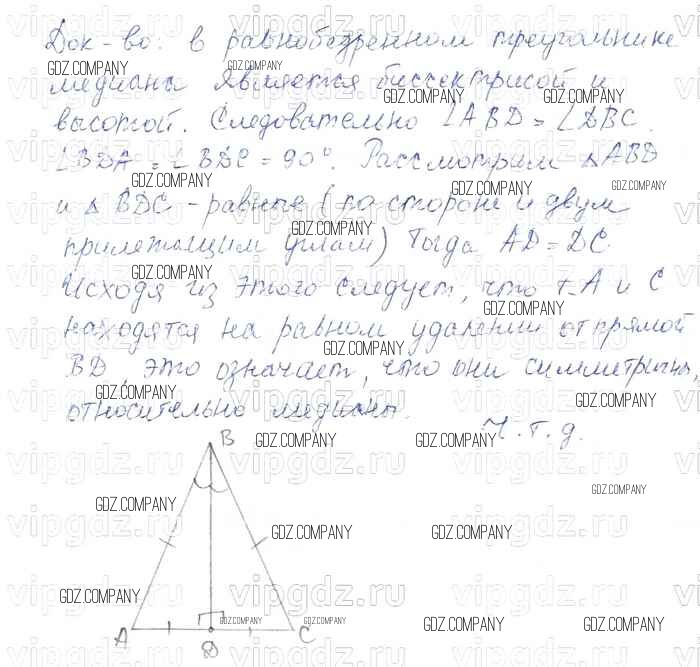 Док-во: в равнобедренном треугольнике
медиана является биссектрисой и
высотой. Следовательно ∠ABD = ∠DBC.
∠BDA = ∠BDC = 90°. Рассмотрим △ABD
и △BDC - равные (по стороне и двум
прилежащим углам) Тогда AD = DC.
Исходя из этого следует, что т. A и C
находятся на равном удалении от прямой
BD, это означает, что они симметричны,
относительно медианы.
Ч.т.д.
B
A
D
C
vipgdz.ru
GDZ.COMPANY